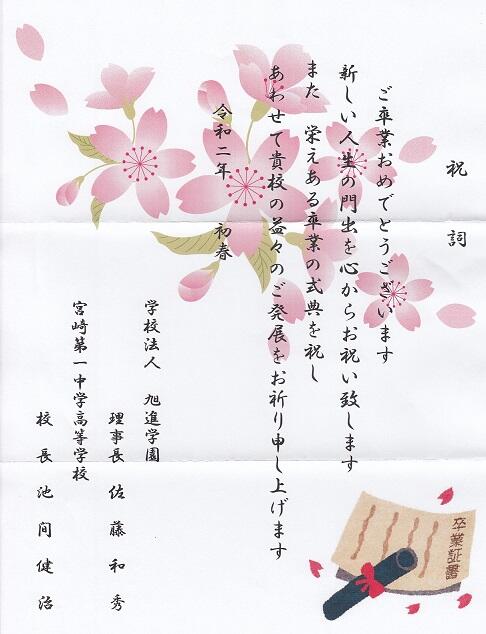 祝詞
ご卒業おめでとうございます
新しい人生の門出を心からお祝い致します
また 栄えある卒業の式典を祝し
あわせて貴校の益々のご発展をお祈り申し上げます
令和二年 初春
学校法人 旭進学園
理事長 佐藤和秀
宮崎第一中学高等学校
校長 池間健治
卒業証書